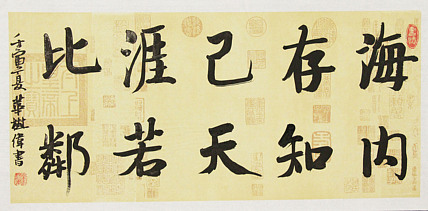 海内
存知
己天
涯若
比鄰
壬寅夏華樹偉書